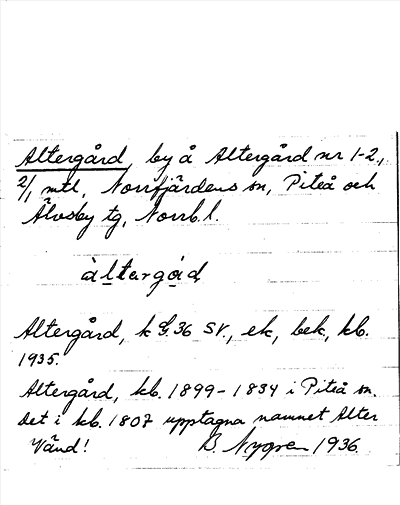 Altergård, by å Altergård nr 1-2,
2/1 mtl, Norrfjärdens sn, Piteå och
Älvsby tg, Norrb. l.
àltargód
Altergård, k G. 36 SV., ek, bek, kb.
1935.
Altergård, kb. 1899-1834 i Piteå sn.
det i kb. 1807 upptagna namnet Alter
Vänd!
B. Nygren 1936.